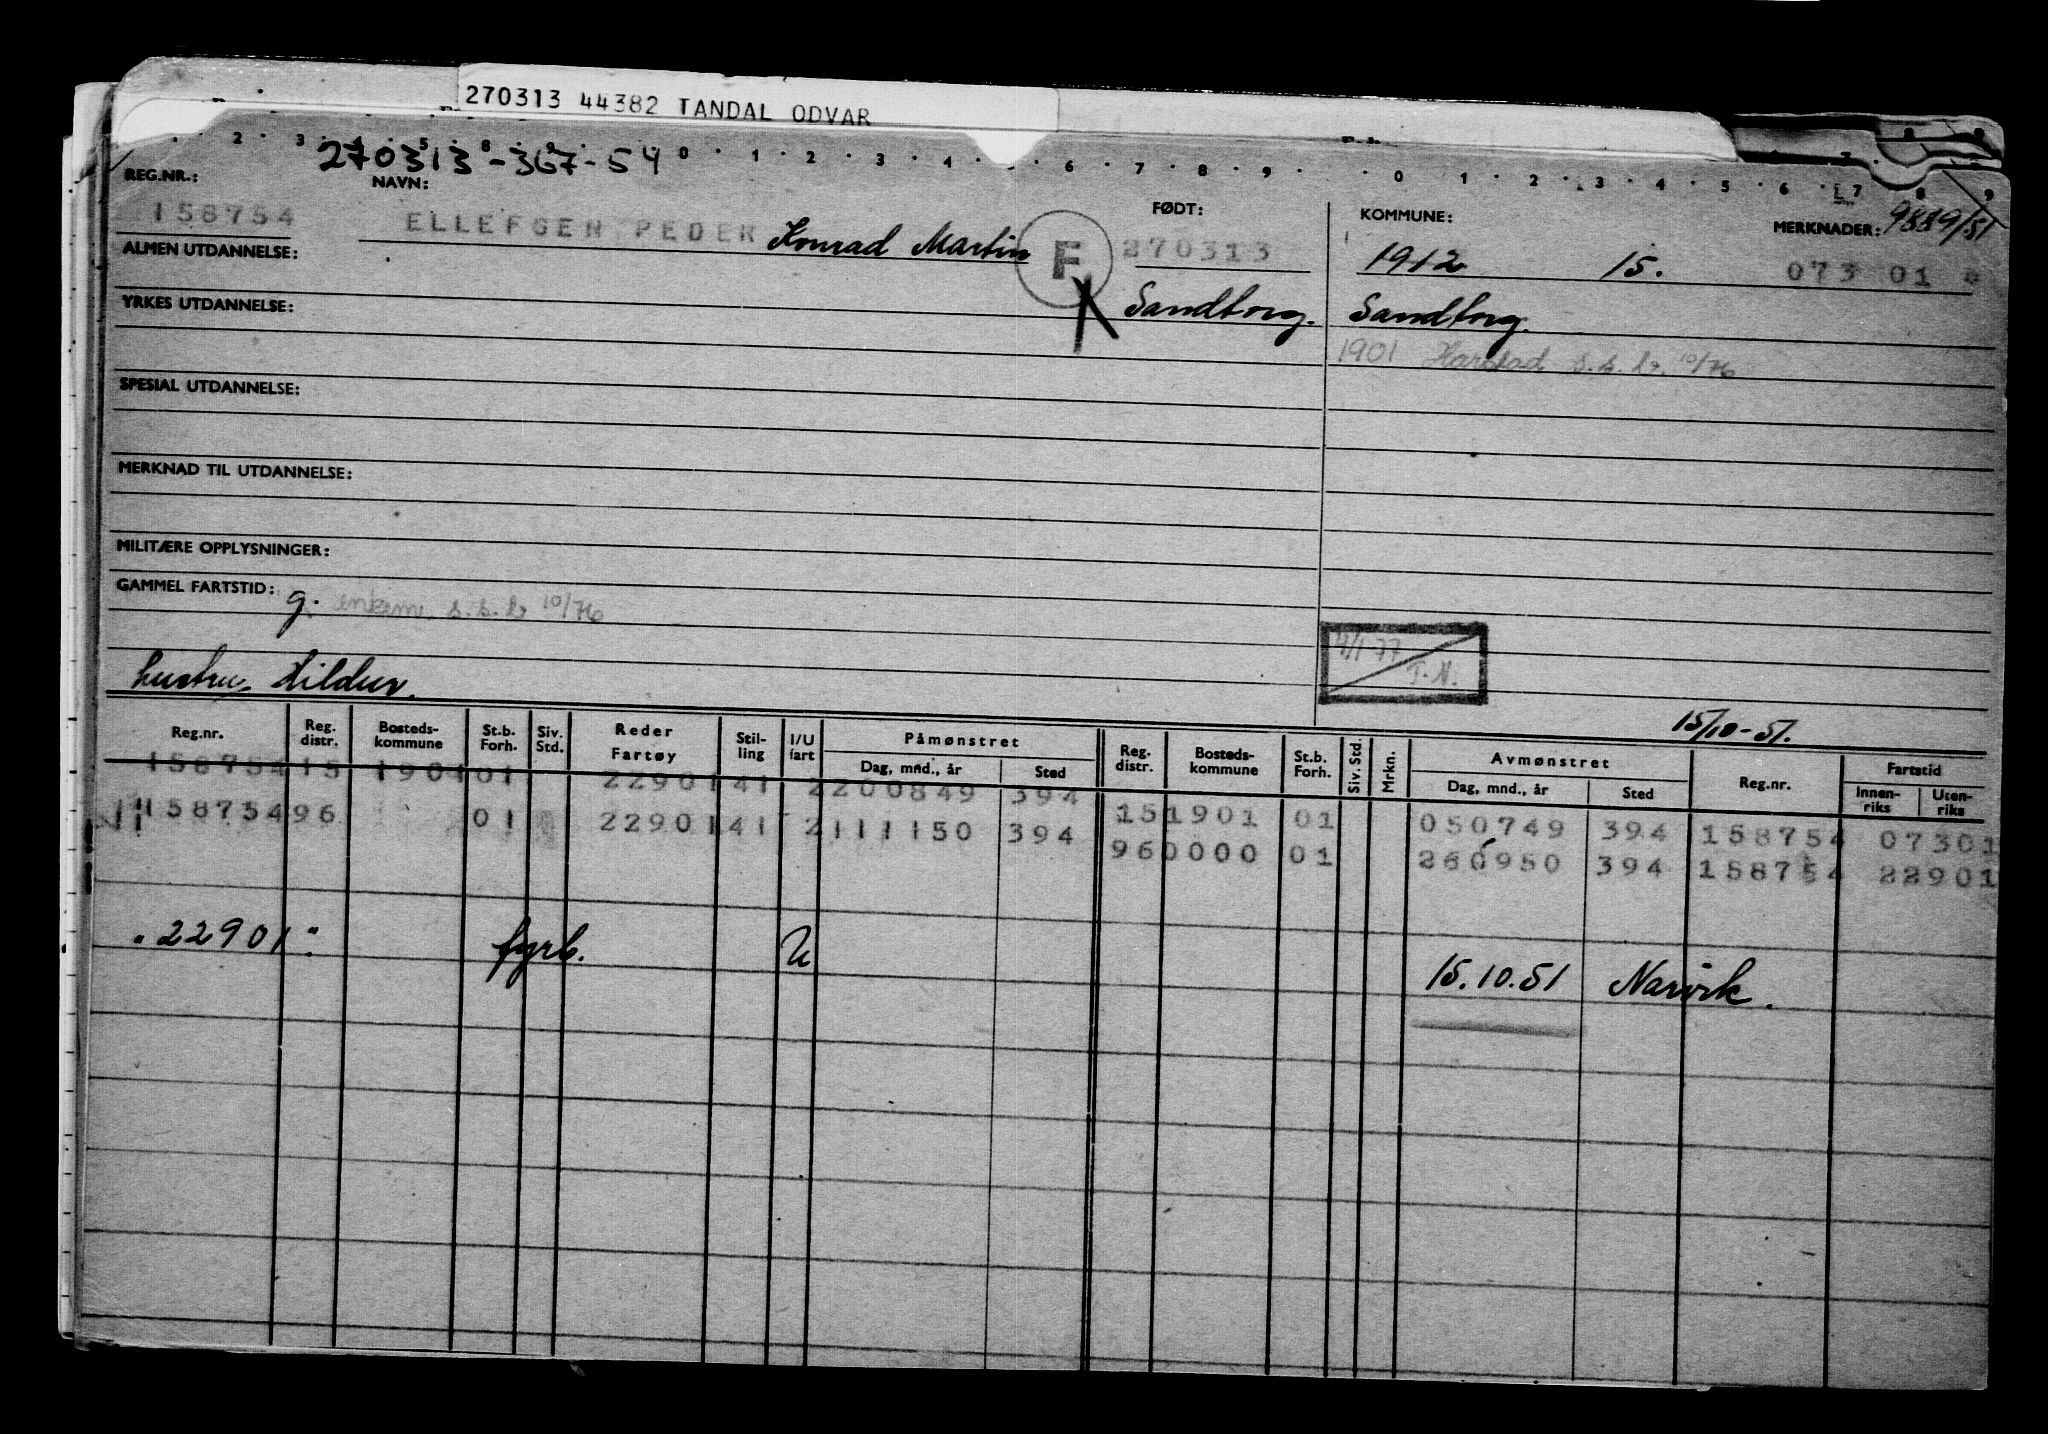 270313 44382 TANDAL ODVAR
2 3 4 5 6 0 1 2 3 4 6 7 8 9 0 1 2 3 4 5 6 7 8 9
270313-367-54
REG.NR.: NAVN: FØDT: KOMMUNE: MERKNADER: 9889/51
158754 ELLEFSEN PEDER Konrad Martin F 270313 1912 15. 073 01
ALMEN UTDANNELSE:
YRKES UTDANNELSE: Sandtorg. Sandtorg.
1901 Harstad s.s. br. 10/76
SPESIAL UTDANNELSE:
MERKNAD TIL UTDANNELSE:
MILITÆRE OPPLYSNINGER:
GAMMEL FARTSTID: g. s.s. br 10/76
4/1 77 T.N.
hustru Hildur.
15/10-51.
Reg.nr. Reg. distr. Bosteds-kommune St.b. Forh. Siv. Std. Reder Fartøy Stil-ling I/U fart Påmønstret Dag, mnd., år Sted Reg. distr. Bosteds-kommune St.b. Forh. Siv. Std. Mrkn. Avmønstret Dag, mnd., år Sted Reg.nr. Fartstid Innen-riks Uten-riks
158754 15 1901 01 22901 41 2 200849 394 15 1901 01 050749 394 158754 07301
158754 96 01 22901 41 2 111150 394 96 0000 01 260950 394 158754 22901
"22901" fyrb. U 15.10.51 Narvik.